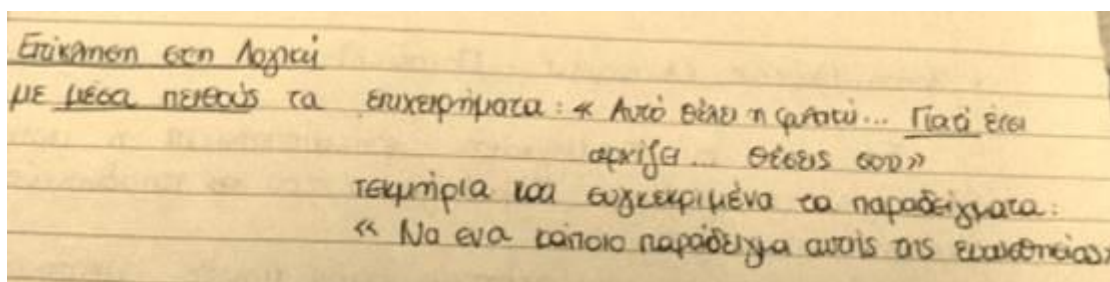 Επίκληση στη Λογική
με μέσα πειθούς τα επιχειρήματα: « Αυτό θέλει η ... Γιατί έτσι
αρχίζει ... θέσεις σου»
τεκμήρια και συγκεκριμένα τα παραδείγματα:
« Να ενα κάποιο παράδειγμα αυτής της ευαισθησίας»